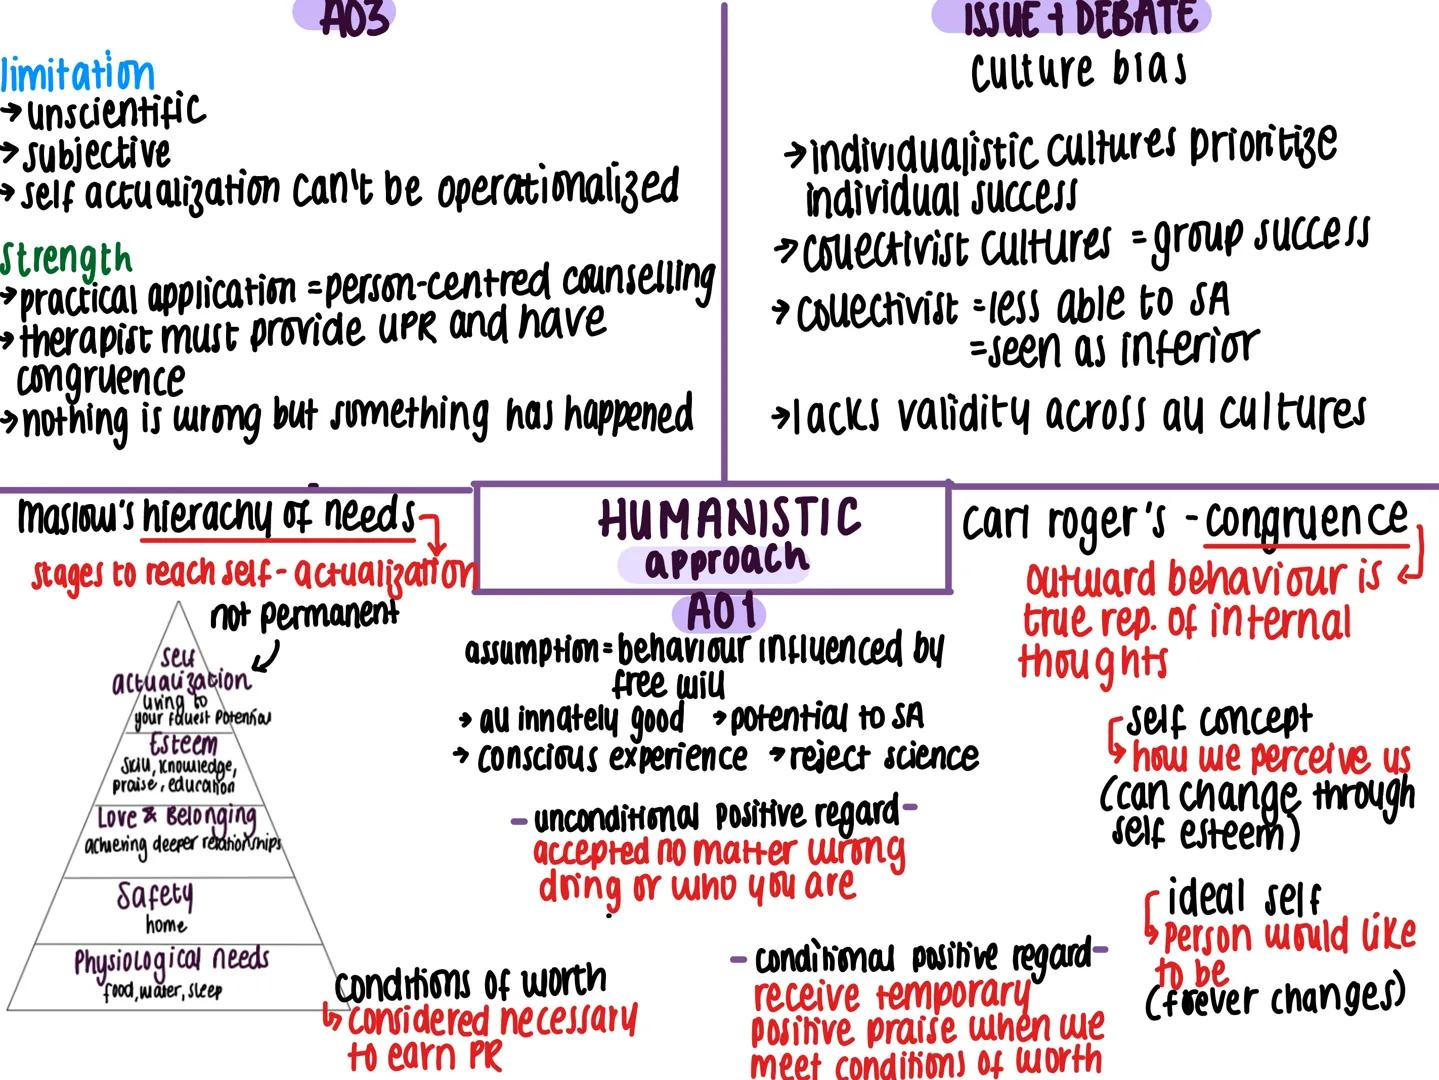 AO3
limitation
→ unscientific
→ subjective
→ self actualization can't be operationalized
Strength
→ practical application = person-centred counselling
→ therapist must provide UPR and have
congruence
→ nothing is wrong but something has happened
ISSUE + DEBATE
culture bias
→ individualistic cultures prioritize
individual success
→ collectivist cultures = group success
→ collectivist = less able to SA
= seen as inferior
→ lacks validity across all cultures
HUMANISTIC
approach
Maslow's hierachy of needs
stages to reach self-actualization
not permanent
Self
actualization
living to
your fullest potential
Esteem
skill, knowledge,
praise, education
Love & Belonging
achieving deeper relationships
Safety
home
Physiological needs
food, water, sleep
conditions of worth
considered necessary
to earn PR
AO1
assumption = behaviour influenced by
free will
→ all innately good → potential to SA
→ conscious experience → reject science
- unconditional positive regard -
accepted no matter wrong
doing or who you are
- conditional positive regard -
receive temporary
positive praise when we
meet conditions of worth
carl roger's - congruence
outward behaviour is
true rep. of internal
thoughts
self concept
how we perceive us
(can change through
self esteem)
ideal self
person would like
to be
(forever changes)